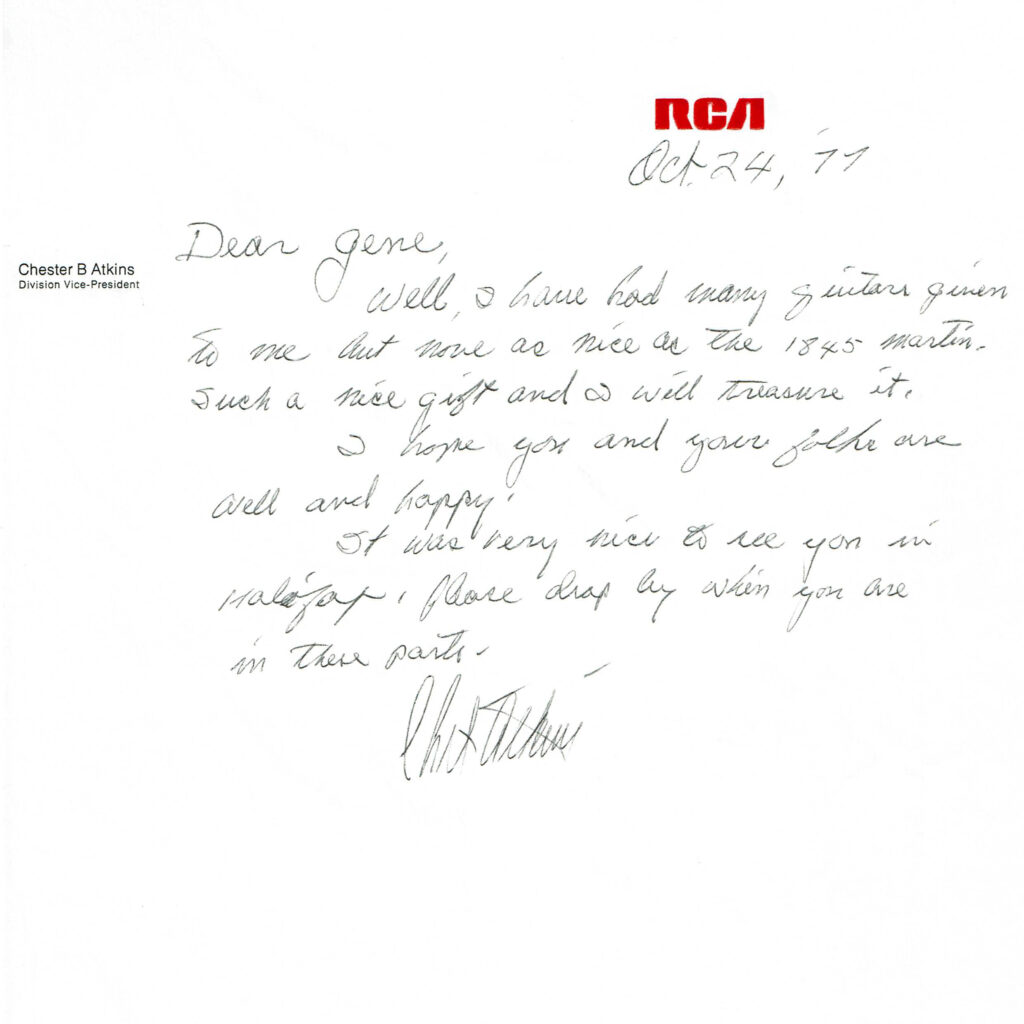 RCA
Oct. 24, '77
Dear Gene,
Chester B Atkins
Division Vice-President
Well, I have had many guitars given
to me but none as nice as the 1845 Martin.
Such a nice gift and I will treasure it.
I hope you and your folks are
well and happy.
It was very nice to see you in
Halifax. Please drop by when you are
in these parts.
Chet Atkins